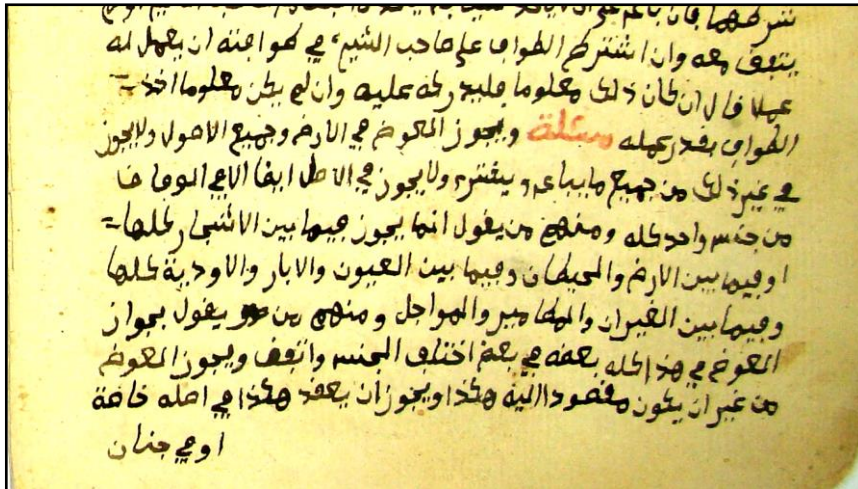 يتفق معه وان اشترط الطواف على صاحب الشيء في طوافته ان يعمل له
عملا قال ان كان ذلك معلوما فليدركه عليه وان لم يكن معلوما اخذ
الطواف بقدر عمله مسئلة ويجوز المعوض في الارض وجميع الاصول ولا يجوز
في غير ذلك من جميع ما يباع ويشترى ولا يجوز في الاصل ايضا الا في
من جنس واحد كله ومنهم من يقول انما يجوز فيما بين الاشجار كلها
او فيما بين الارض والحيطان وفيما بين العيون والابار والاودية كلها
وفيما بين الغيران والمطامير والمواجل ومنهم من يقول بجواز
المعوض في هذا كله بعضه في بعض اختلف الجنس واتفق ويجوز المعوض
من غير ان يكون مقصودا اليه هكذا ويجوز ان يعقد هكذا في اصله خاصة
او في جنان